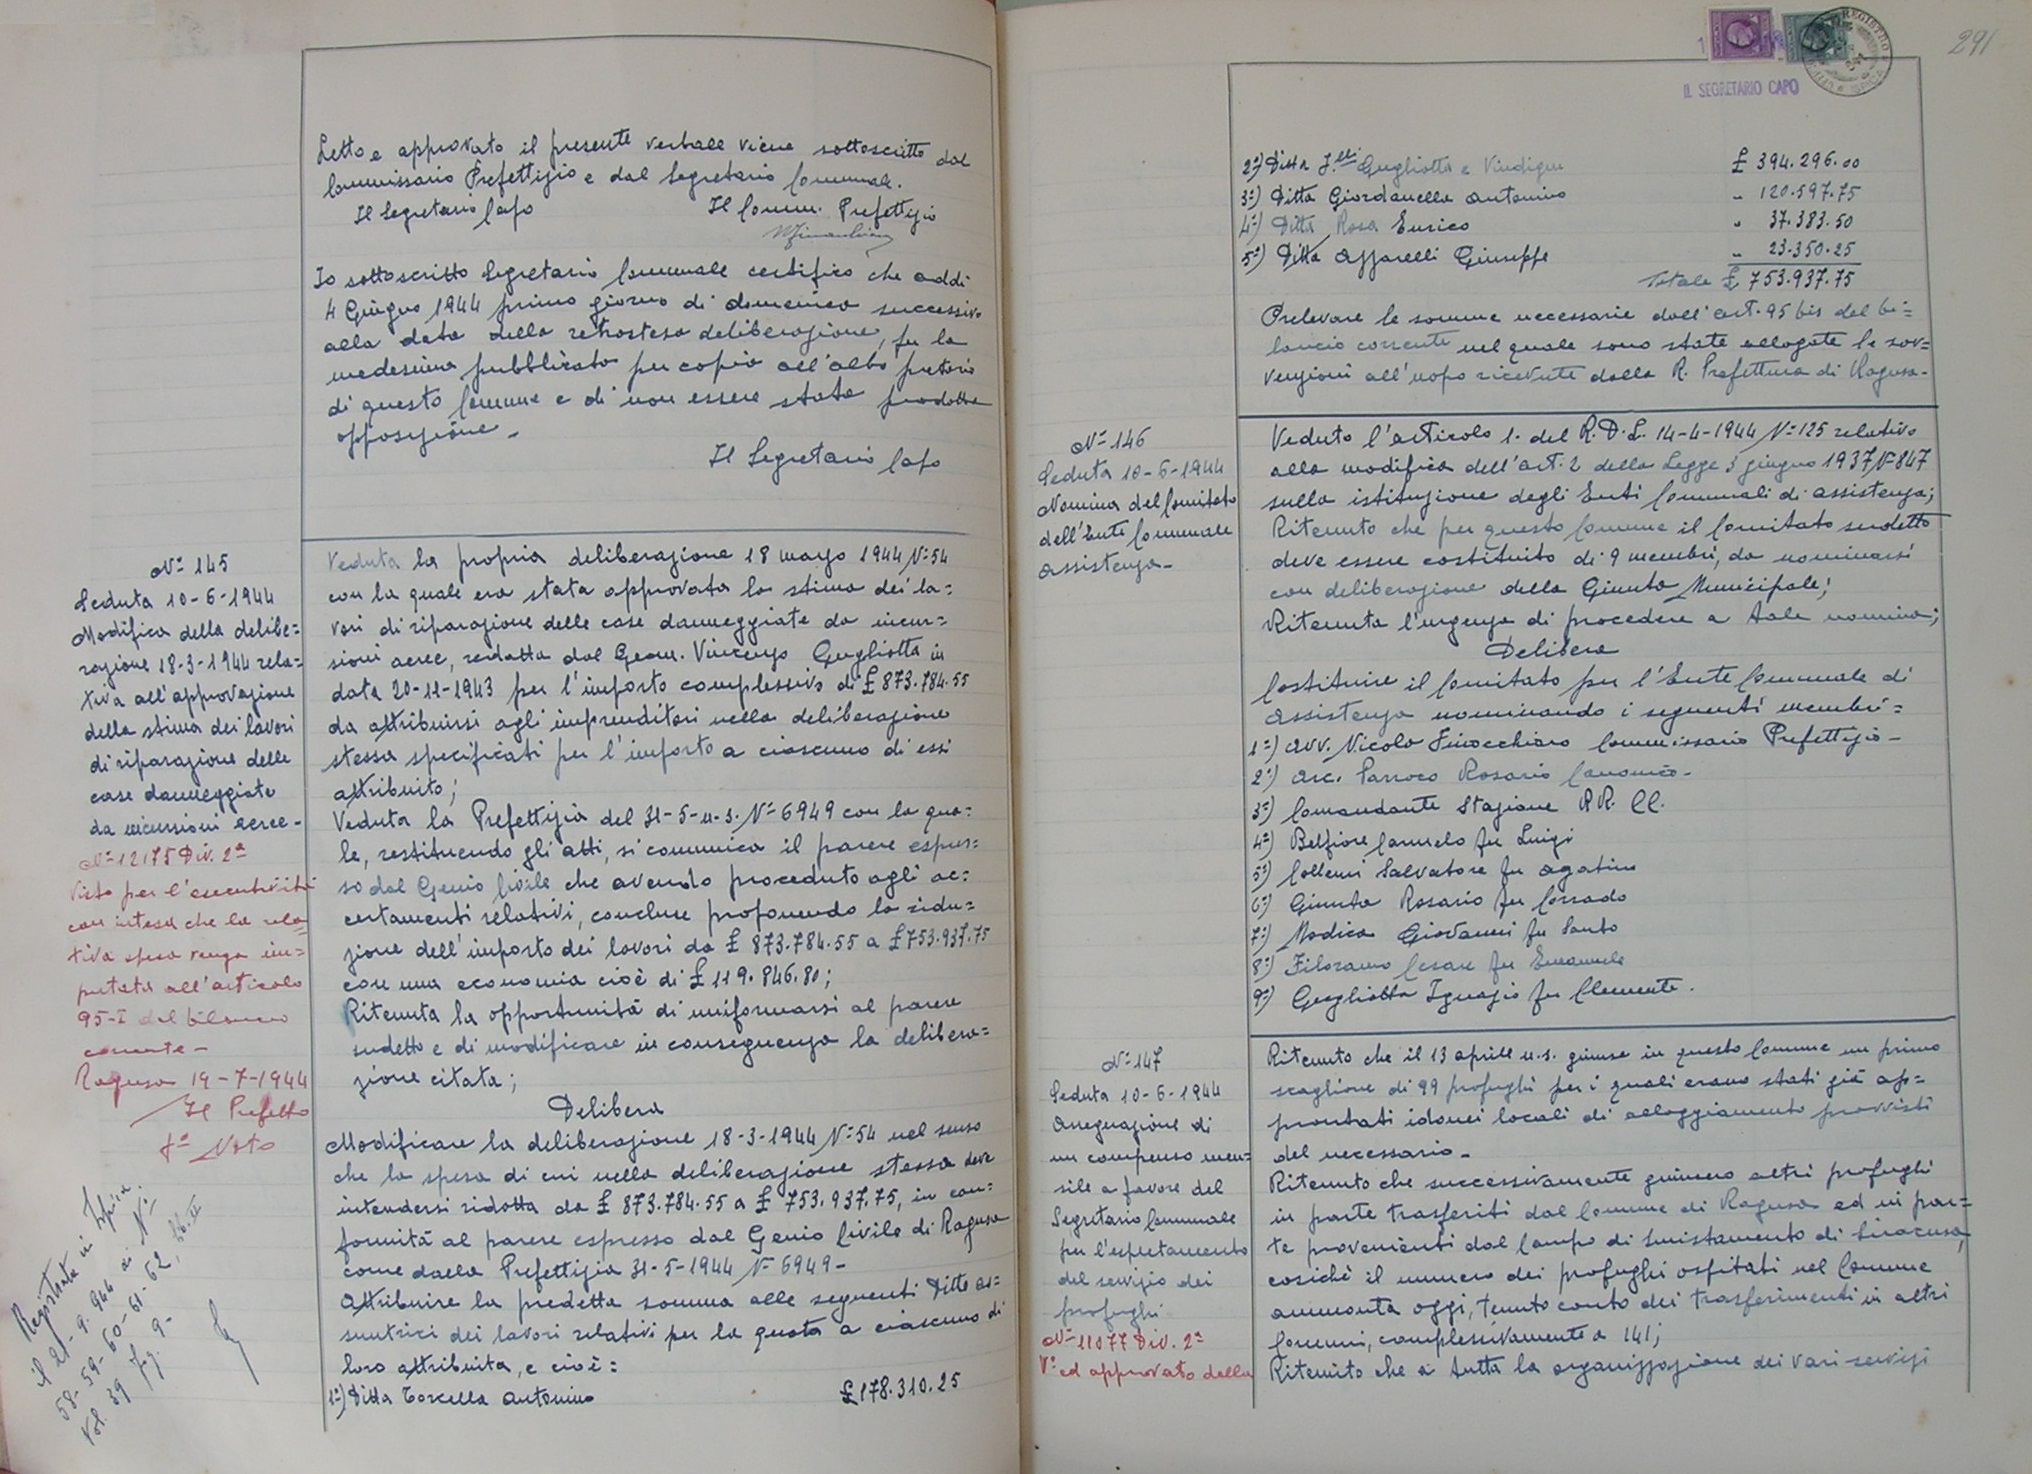 Letto e approvato il presente verbale viene sottoscritto dal
Commissario Prefettizio e dal Segretario Comunale.
Il Segretario Capo Il Comm. Prefettizio
Io sottoscritto Segretario Comunale certifico che addì
4 Giugno 1944 primo giorno di domenica successivo
alla data della retrostesa deliberazione, fu la
medesima pubblicata per copia all'albo pretorio
di questo Comune e di non essere stata prodotta
opposizione.
Il Segretario Capo
N° 145
Seduta 10-6-1944
Modifica della delibe=
razione 18-3-1944 rela=
tiva all'approvazione
della stima dei lavori
di riparazione delle
case danneggiate
da incursioni aeree-
N° 12175 Div. 2ª
Visto per l'esecutività
con intesa che la rela
tiva spesa venga im=
putata all'articolo
95-I del bilancio
corrente-
Ragusa 19-7-1944
Il Prefetto
fº Noto
Registrata in Ispica
il 21-9-944 ai Nⁱ
58-59-60-61-62,
Vol. 39 Fg. 9-
Veduta la propria deliberazione 18 marzo 1944 N° 54
con la quale era stata approvata la stima dei la=
vori di riparazione delle case danneggiate da incur=
sioni aeree, redatta dal Geom. Vincenzo Gugliotta in
data 20-11-1943 per l'importo complessivo di £ 873.784.55
da attribuirsi agli imprenditori nella deliberazione
stessa specificati per l'importo a ciascuno di essi
attribuito;
Veduta la Prefettizia del 31-5-u.s. N° 6949 con la qua=
le, restituendo gli atti, si comunica il parere espres=
so dal Genio Civile che avendo proceduto agli ac=
certamenti relativi, conclude proponendo la ridu=
zione dell'importo dei lavori da £ 873.784.55 a £ 753.937.75
con una economia cioè di £ 119.846.80;
Ritenuta la opportunità di uniformarsi al parere
sudetto e di modificare in conseguenza la delibera=
zione citata;
Delibera
Modificare la deliberazione 18-3-1944 N° 54 nel senso
che la spesa di cui nella deliberazione stessa deve
intendersi ridotta da £ 873.784.55 a £ 753.937.75, in con=
formità al parere espresso dal Genio Civile di Ragusa
come dalla Prefettizia 31-5-1944 N° 6949-
Attribuire la predetta somma alle seguenti Ditte as=
suntrici dei lavori relativi per la quota a ciascuno di
loro attribuita, e cioè:
1ª) Ditta Torcella Antonino £ 178.310.25
291
IL SEGRETARIO CAPO
2ª) Ditta F.lli Gugliotta e Vindigni £ 394.296.00
3ª) Ditta Giordanella Antonino " 120.597.75
4ª) Ditta Rosa Enrico " 37.383.50
5ª) Ditta Apparelli Giuseppe " 23.350.25
Totale £ 753.937.75
Prelevare le somme necessarie dall'art. 95 bis del bi=
lancio corrente nel quale sono state allogate le sov=
venzioni all'uopo ricevute dalla R. Prefettura di Ragusa-
N° 146
Seduta 10-6-1944
Nomina del Comitato
dell'Ente Comunale
Assistenza-
Veduto l'articolo 1. del R.D.L. 14-4-1944 N° 125 relativo
alla modifica dell'art. 2 della Legge 3 giugno 1937 N° 847
sulla istituzione degli Enti Comunali di assistenza;
Ritenuto che per questo Comune il Comitato sudetto
deve essere costituito di 9 membri, da nominarsi
con deliberazione della Giunta Municipale;
Ritenuta l'urgenza di procedere a tale nomina;
Delibera
Costituire il Comitato per l'Ente Comunale di
Assistenza nominando i seguenti membri=
1°) Avv. Nicolò Finocchiaro Commissario Prefettizio-
2°) Arc. Parroco Rosario Canonico-
3°) Comandante Stazione RR. CC.
4°) Belfiore Carmelo fu Luigi
5°) Collemi Salvatore fu Agatino
6°) Giunta Rosario fu Corrado
7°) Modica Giovanni fu Santo
8°) Filoramo Cesare fu Emanuele
9°) Gugliotta Ignazio fu Clemente.
N° 147
Seduta 10-6-1944
Assegnazione di
un compenso men=
sile a favore del
Segretario Comunale
per l'espletamento
del servizio dei
profughi
N° 11077 Div. 2ª
V° ed approvato dalla
Ritenuto che il 13 aprile u.s. giunse in questo Comune un primo
scaglione di 99 profughi per i quali erano stati già ap=
prontati idonei locali di alloggiamento provvisti
del necessario-
Ritenuto che successivamente giunsero altri profughi
in parte trasferiti dal Comune di Ragusa ed in par=
te provenienti dal Campo di Smistamento di Siracusa,
cosichè il numero dei profughi ospitati nel Comune
ammonta oggi, tenuto conto dei trasferimenti in altri
Comuni, complessivamente a 141;
Ritenuto che a tutta la organizzazione dei vari servizi